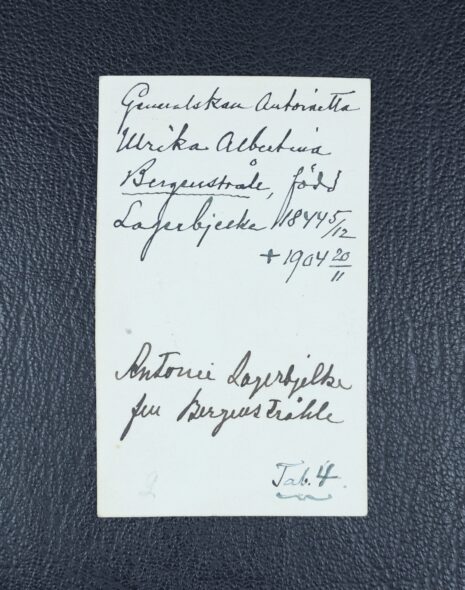 Generalskan Antoinetta
Ulrika Albertina
Bergenstråle, född
Lagerbjelke 1844 5/12
+ 1904 20/11
Antonie Lagerbjelke
fru Bergenstråhle
Tab. 4.
2